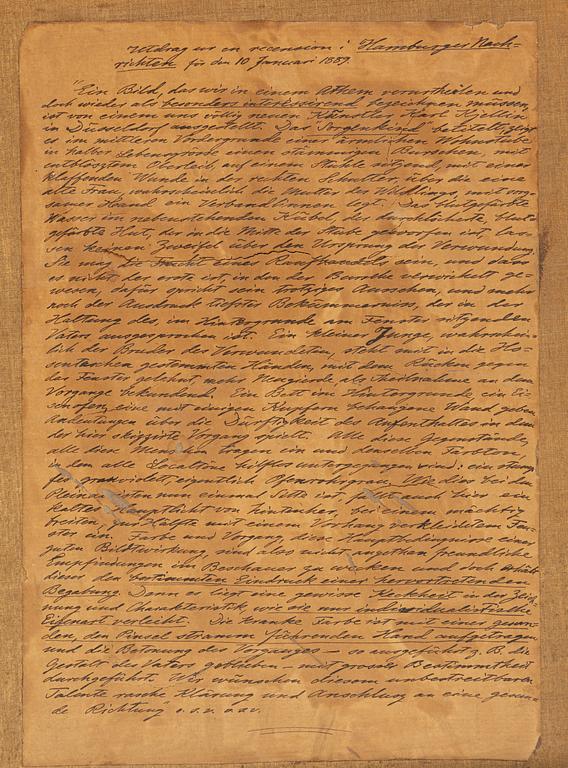 Utdrag ur en recension i Hamburger Nach-
richten för den 10 Januari 1887.
"Ein Bild, das wir in einem Athem verurtheilen und
doch wieder als besonders interessirend bezeichnen müssen,
ist von einem uns völlig neuen Künstler Karl Kjellin
in Düsseldorf ausgestellt. Das "Sorgenkind" betitelt, zeigt
es im mittleren Vordergrunde einer ärmlichen Wohnstube
in halber Lebensgrösse einen stämmigen Burschen, mit
entblösstem Oberleib, auf einem Stuhle sitzend, mit einer
klaffenden Wunde in der rechten Schulter, über die eine
alte Frau, wahrscheinlich die Mutter des Wildlings, mit sorg-
samer Hand ein Verbandlinnen legt. Das blutgefärbte
Wasser im nebenstehenden Kübel, der durchlöcherte, blut-
gefärbte Hut, der in die Mitte der Stube geworfen ist, las-
sen keinen Zweifel über den Ursprung der Verwundung.
Sie mag die Frucht eines Raufhandels sein, und dass
es nicht der erste ist, in den der Bursche verwickelt ge-
wesen, dafür spricht sein trotziges Aussehen, und mehr
noch der Ausdruck tiefster Bekümmerniss, der in der
Haltung des, im Hintergrunde am Fenster sitzenden
Vaters ausgesprochen ist. Ein kleiner Junge, wahrschein-
lich der Bruder des Verwundeten, steht mit in die Ho-
sentaschen gestemmten Händen, mit dem Rücken gegen
das Fenster gelehnt, mehr Neugierde als Theilnahme an dem
Vorgange bekundend. Ein Bett im Hintergrunde, ein Ei-
senofen, eine mit einigen Kupfern behangene Wand geben
Andeutungen über die Dürftigkeit des Aufenthaltes in dem
der hier skizzirte Vorgang spielt. Alle diese Gegenstände,
alle diese Menschen tragen ein und denselben Farbton,
in dem alle Localtöne hilflos untergegangen sind: ein stum-
pfes eigentlich Ofenrohrgrau. Wie dies bei den
nun einmal Sitte ist, auch hier ein
kaltes Hauptlicht von hintenher, bei einem mächtig
breiten, zur Hälfte mit einem Vorhang bekleidetem Fen-
ster ein. Farbe und Vorgang diese Hauptbedingnisse einer
guten Bildwirkung, sind also nicht angethan freundliche
Empfindungen im Beschauer zu wecken und doch erhält
dieser den bestimmten Eindruck einer hervortretenden
Begabung. Denn es liegt eine gewisse Keckheit in der Zeich-
nung und Charakteristik, wie sie nur individualistische
Eigenart verleiht. Die kranke Farbe ist mit einer gesun-
den, den Pinsel stramm führenden Hand aufgetragen
und die Betonung des Vorganges – so ausgeführt z. B. die
Gestalt des Vaters geblieben – mit grosser Bestimmtheit
durchgeführt. Wir wünschen diesem unbestreitbaren
Talente rasche Klärung und Anschluss an eine gesun-
de Richtung" o. s. v. o. av.